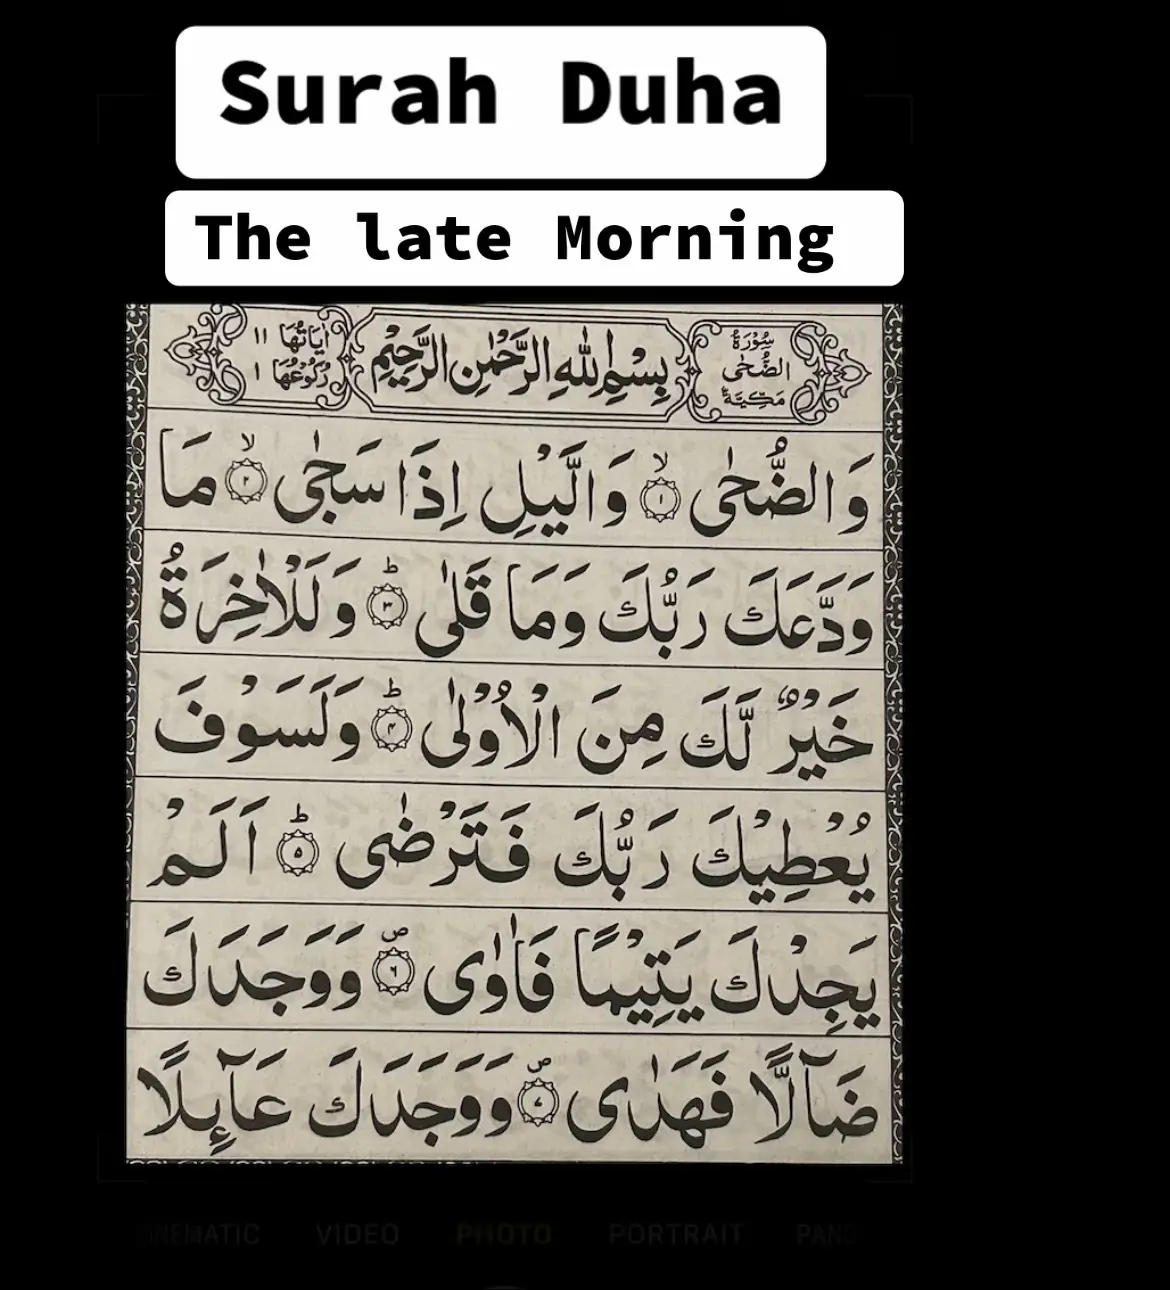 Surah Duha
The late Morning
سُوْرَةُ الضُّحٰى مَكِّيَّةٌ
بِسْمِ اللّٰهِ الرَّحْمٰنِ الرَّحِيْمِ
اٰيَاتُهَا ١١
رُكُوْعُهَا ١
وَالضُّحٰى ۙ‏﴿۱﴾ وَالَّيْلِ اِذَا سَجٰى ۙ‏﴿۲﴾ مَا
وَدَّعَكَ رَبُّكَ وَمَا قَلٰى ؕ‏﴿۳﴾ وَلَلْاٰخِرَةُ
خَيْرٌ لَّكَ مِنَ الْاُوْلٰى ؕ‏﴿۴﴾ وَلَسَوْفَ
يُعْطِيْكَ رَبُّكَ فَتَرْضٰى ؕ‏﴿۵﴾ اَلَمْ
يَجِدْكَ يَتِيْمًا فَاٰوٰى ۪‏﴿۶﴾ وَوَجَدَكَ
ضَآلًّا فَهَدٰى ۪‏﴿۷﴾ وَوَجَدَكَ عَآٮِٕلًا
CINEMATIC VIDEO PHOTO PORTRAIT PANO